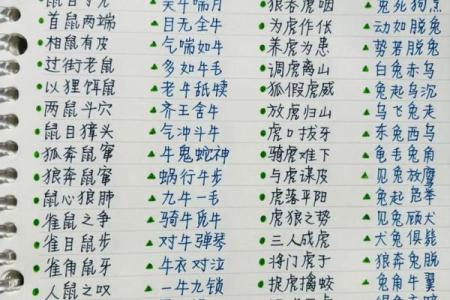 吴牛喘月
狼吞虎咽
兔死狗烹
首鼠两端 目无全牛 为虎作伥 动如脱兔
相鼠有皮 气喘如牛 养虎为患 势若脱兔
过街老鼠 多如牛毛 调虎离山 白兔赤乌
以狸饵鼠 老牛舐犊 狐假虎威 兔起乌沉
两鼠斗穴 齐王舍牛 放虎归山 乌飞兔走
鼠目獐头 气冲斗牛 虎口拔牙 东兔西乌
狐奔鼠窜 牛鬼蛇神 骑虎难下 龟毛兔角
狼奔鼠窜 蜗行牛步 与虎谋皮 见兔放鹰
鼠心狼肺 九牛一毛 虎落平阳 兔起凫举
雀鼠之争 骑牛觅牛 虎狼之势 见兔顾犬
雀目鼠步 对牛弹琴 三人成虎 犬兔俱毙
雀角鼠牙 牛衣对泣 将门虎子 狼奔兔脱
人鼠之叹 一牛九锁 捉虎擒蛟 兔角牛翼